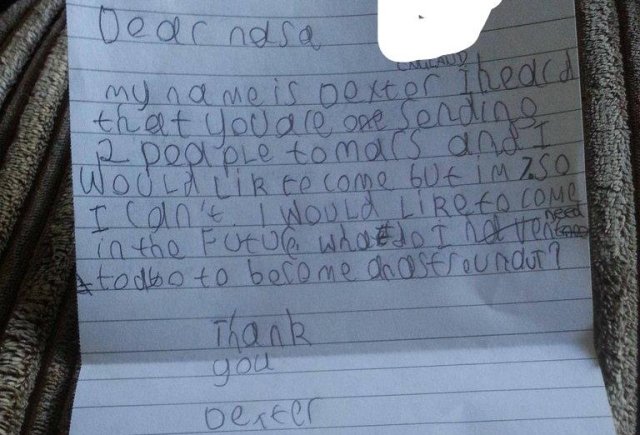 Dear nasa
ENGLAUD
my name is Dexter I heard
that you are one sending
2 peaple to mars and I
would lik to come but im 7 so
I can't. I would like to come
in the future. what do I need
to do to become an astroundut?
Thank
you
Dexter